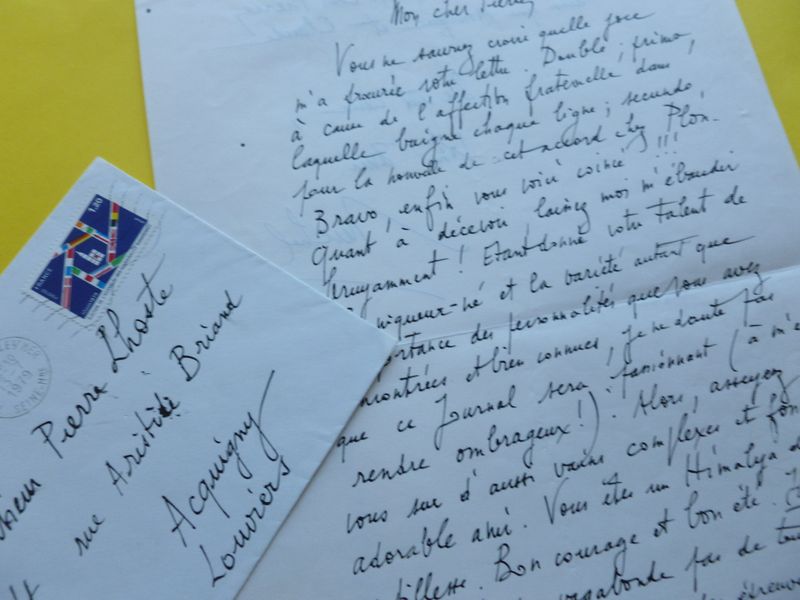 Mon cher Pierre,
Vous ne saurez croire quelle joie
m'a procurée votre lettre. Double; primo,
à cause de l'affection fraternelle dans
laquelle baigne chaque ligne; secundo,
pour la nouvelle de cet accord chez Plon.
Bravo, enfin vous voici coincé !!!
Quant à décevoir, laissez moi m'ébaudir
bruyamment ! Etant donné votre talent de
niqueur-né et la variété autant que
portance des personnalités que vous avez
rencontrées et bien connues, je ne doute pas
que ce Journal sera passionnant (à m'e
rendre ombrageux !). Alors, asseyez
vous sur d'aussi vains complexes et fon
adorable ami. Vous êtes un Himalya d
tillesse. Bon courage et bon été.
vagabonde pas de tou
1,20
FRANCE
1979
SEINE
sieur Pierre Lhoste
rue Aristide Briand
Acquigny
Louviers